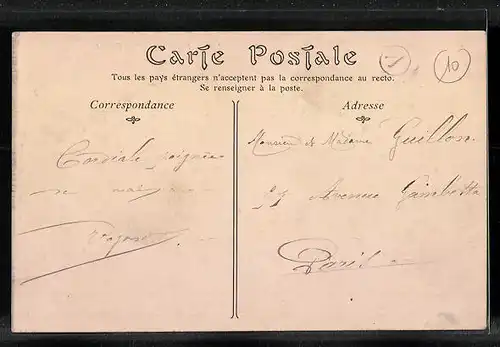 Carte Postale
10
Tous les pays étrangers n'acceptent pas la correspondance au recto.
Se renseigner à la poste.
Correspondance
Adresse
Cordiale poignée
de main
Monsieur et Madame Guillon
Avenue Gambetta
Paris